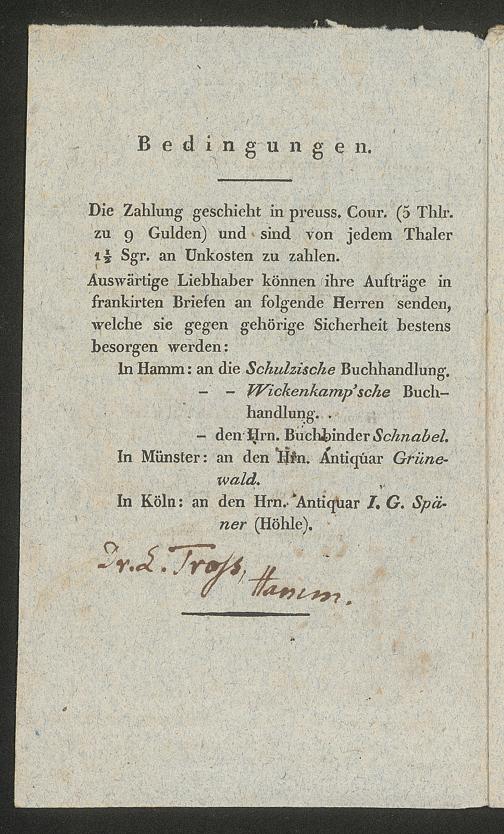 Bedingungen.
Die Zahlung geschieht in preuss. Cour. (5 Thlr.
zu 9 Gulden) und sind von jedem Thaler
1½ Sgr. an Unkosten zu zahlen.
Auswärtige Liebhaber können ihre Aufträge in
frankirten Briefen an folgende Herren senden,
welche sie gegen gehörige Sicherheit bestens
besorgen werden:
In Hamm: an die Schulzische Buchhandlung.
– – Wickenkamp'sche Buch-
handlung.
– den Hrn. Buchbinder Schnabel.
In Münster: an den Hrn. Antiquar Grüne-
wald.
In Köln: an den Hrn. Antiquar I. G. Spä-
ner (Höhle).
Dr. L. Tross,
Hamm.